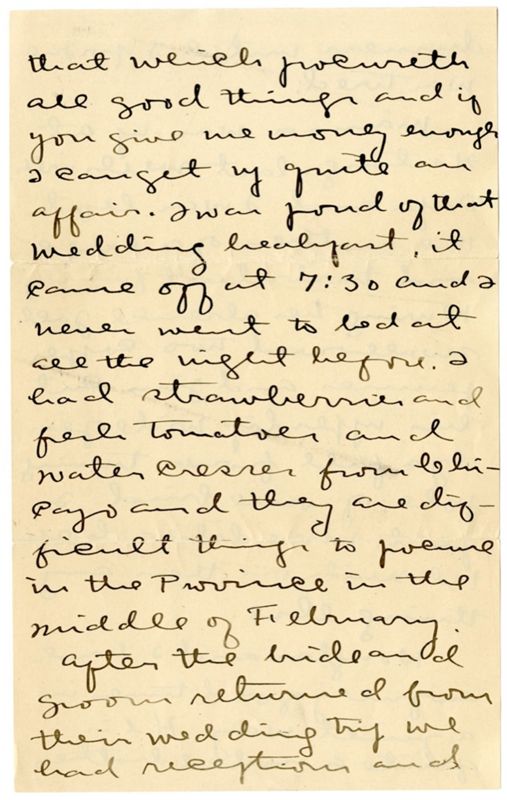 that which procureth
all good things and if
you give me money enough
I can get up quite an
affair. I was proud of that
wedding breakfast, it
came off at 7:30 and I
never went to bed at
all the night before. I
had strawberries and
fresh tomatoes and
water cresses from Chi-
cago and they are dif-
ficult things to procure
in the Province in the
middle of February.
After the bride and
groom returned from
their wedding trip we
had receptions and